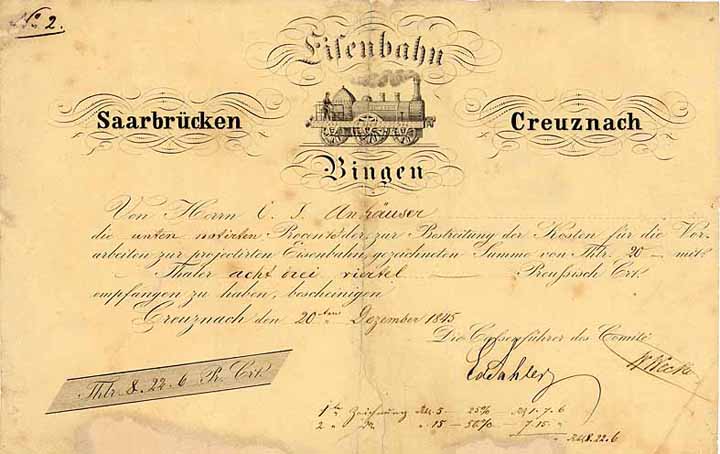 No 2.
Eisenbahn
Saarbrücken
Creuznach
Bingen
Von Herrn C. J. Anhäuser
die unten notirten Procente der, zur Bestreitung der Kosten für die Vor-
arbeiten zur projectirten Eisenbahn, gezeichneten Summe von Thlr. 20 — mit
Thaler acht drei viertel — Preußisch Crt.
empfangen zu haben, bescheinigen
Creuznach den 20ten Dezember 1845
Die Cassenführer des Comité
Thlr. 8. 22. 6 P. Crt.
1te Zeichnung Rtlr. 5 - 25% Rtlr 1. 7. 6
2 " " 15 - 50% - 7. 15. "
Rtlr 8. 22. 6